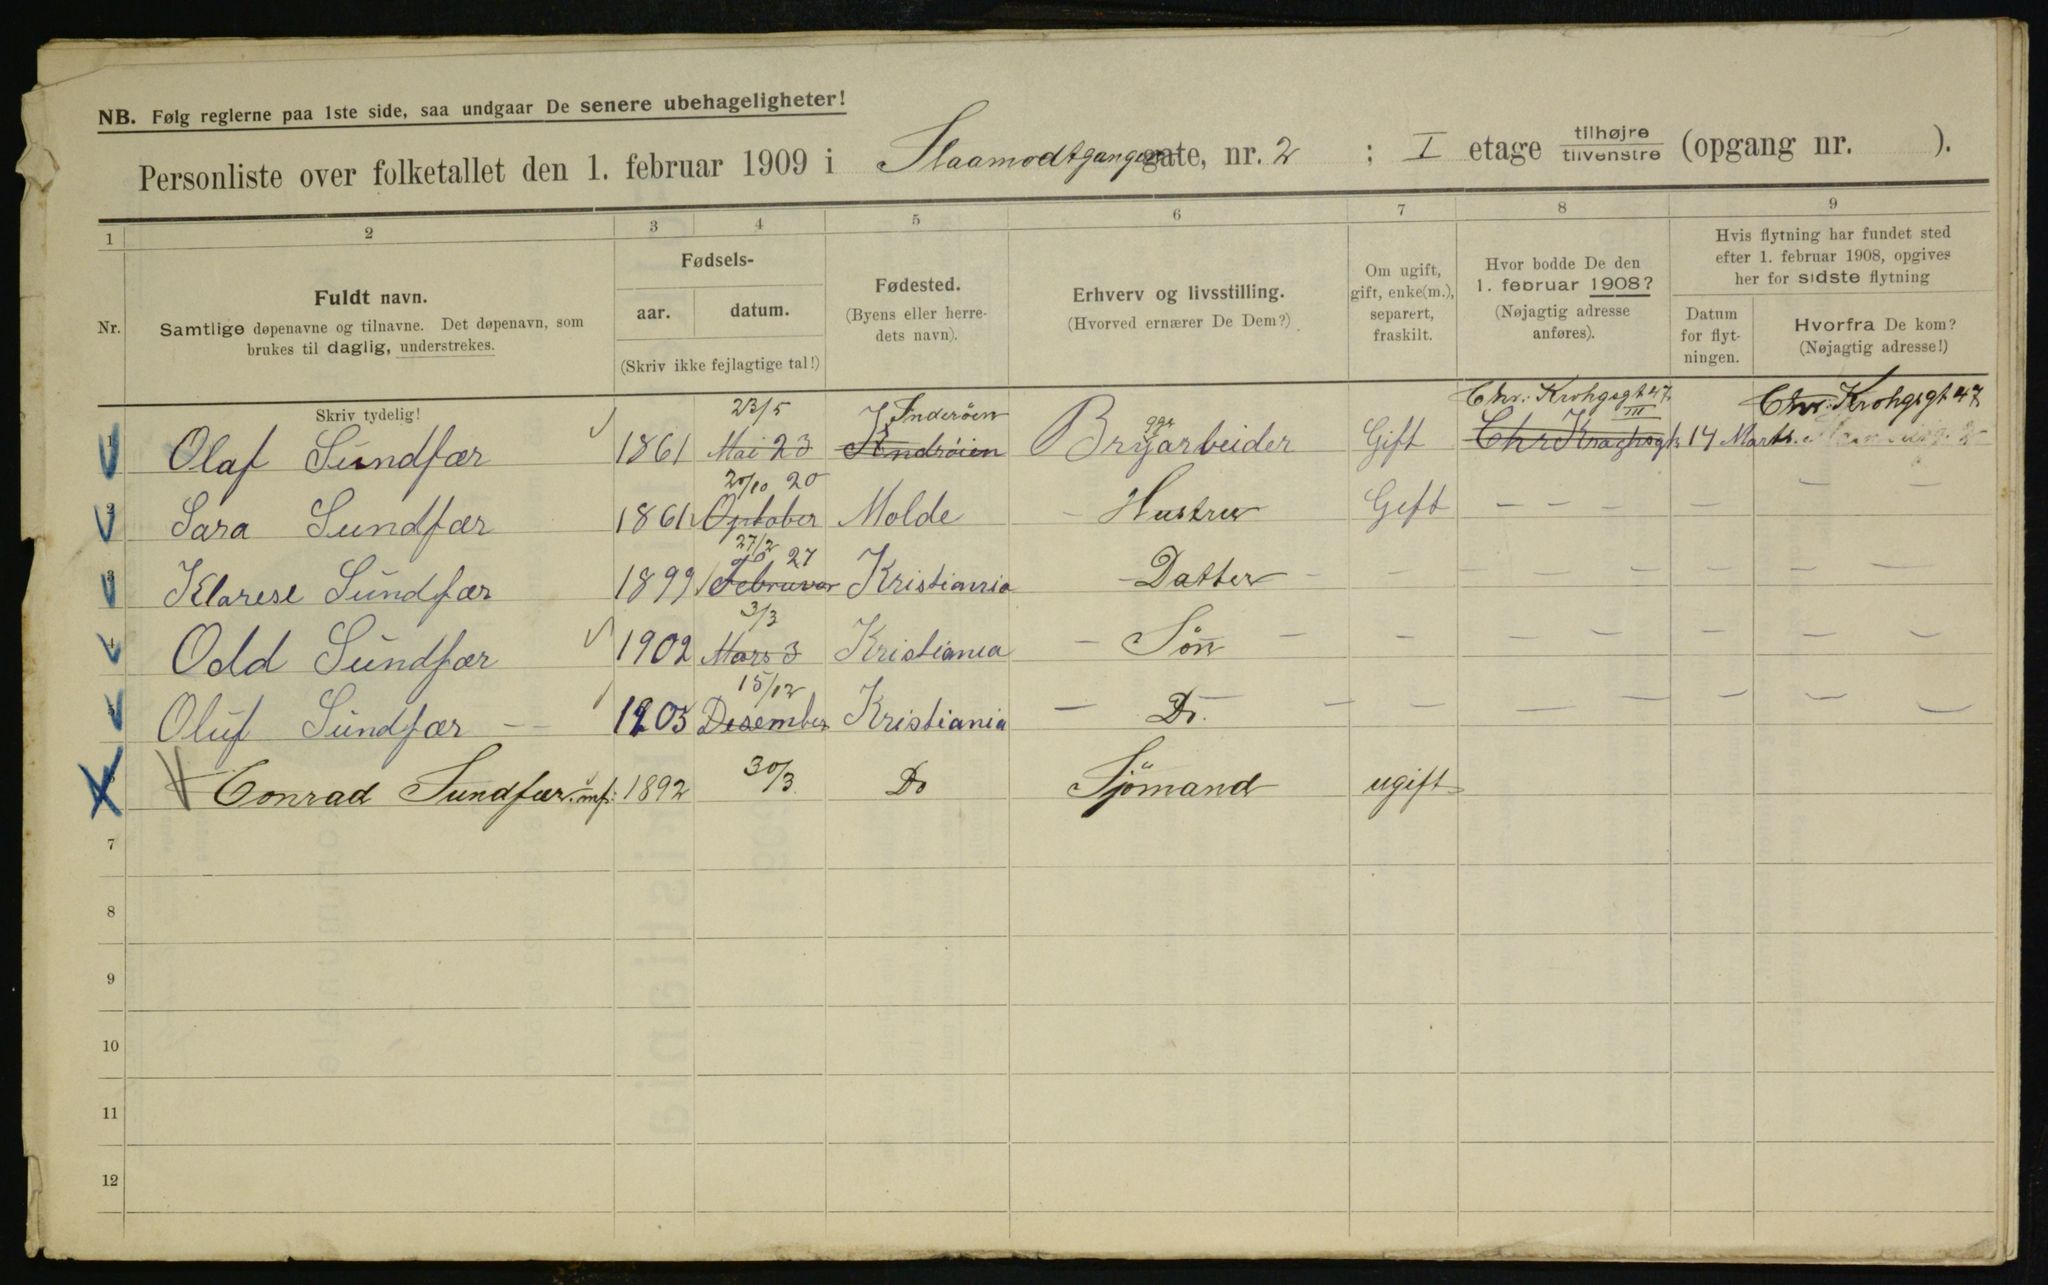 NB. Følg reglerne paa 1ste side, saa undgaar De senere ubehageligheter!
Personliste over folketallet den 1. februar 1909 i Slaamodtgangen gate, nr. 2 ; I etage tilhøjre / tilvenstre (opgang nr. ).
1 2 3 4 5 6 7 8 9
Nr.
Fuldt navn.
Samtlige døpenavne og tilnavne. Det døpenavn, som
brukes til daglig, understrekes.
Fødsels-
aar. datum.
(Skriv ikke fejlagtige tal!)
Fødested.
(Byens eller herre-
dets navn).
Erhverv og livsstilling.
(Hvorved ernærer De Dem?)
Om ugift,
gift, enke(m.),
separert,
fraskilt.
Hvor bodde De den
1. februar 1908?
(Nøjagtig adresse
anføres).
Hvis flytning har fundet sted
efter 1. februar 1908, opgives
her for sidste flytning
Datum
for flyt-
ningen.
Hvorfra De kom?
(Nøjagtig adresse!)
Skriv tydelig!
23/5 Inderöen Chr. Krohgsgt 47 III Chr. Krohgsgt 47
1 Olaf Sundfær 1861 Mai 23 Bryggarbeider Gift 14 Marts
20/10 20
2 Sara Sundfær 1861 October Molde - Hustru Gift - - - - - -
27/2 27
3 Klarese Sundfær 1899 Februar Kristiania - Datter - - - - - - - -
3/3
4 Odd Sundfær 1902 Mars 3 Kristiania - Sön - - - - - - - -
15/12
5 Oluf Sundfær - - 1903 Desember Kristiania - Do. - - - - - - -
6 Conrad Sundfær. mf: 1892 30/3 Do Sjömand ugift
7
8
9
10
11
12